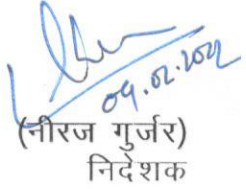 09.02.2022
(नीरज गुर्जर)
निदेशक